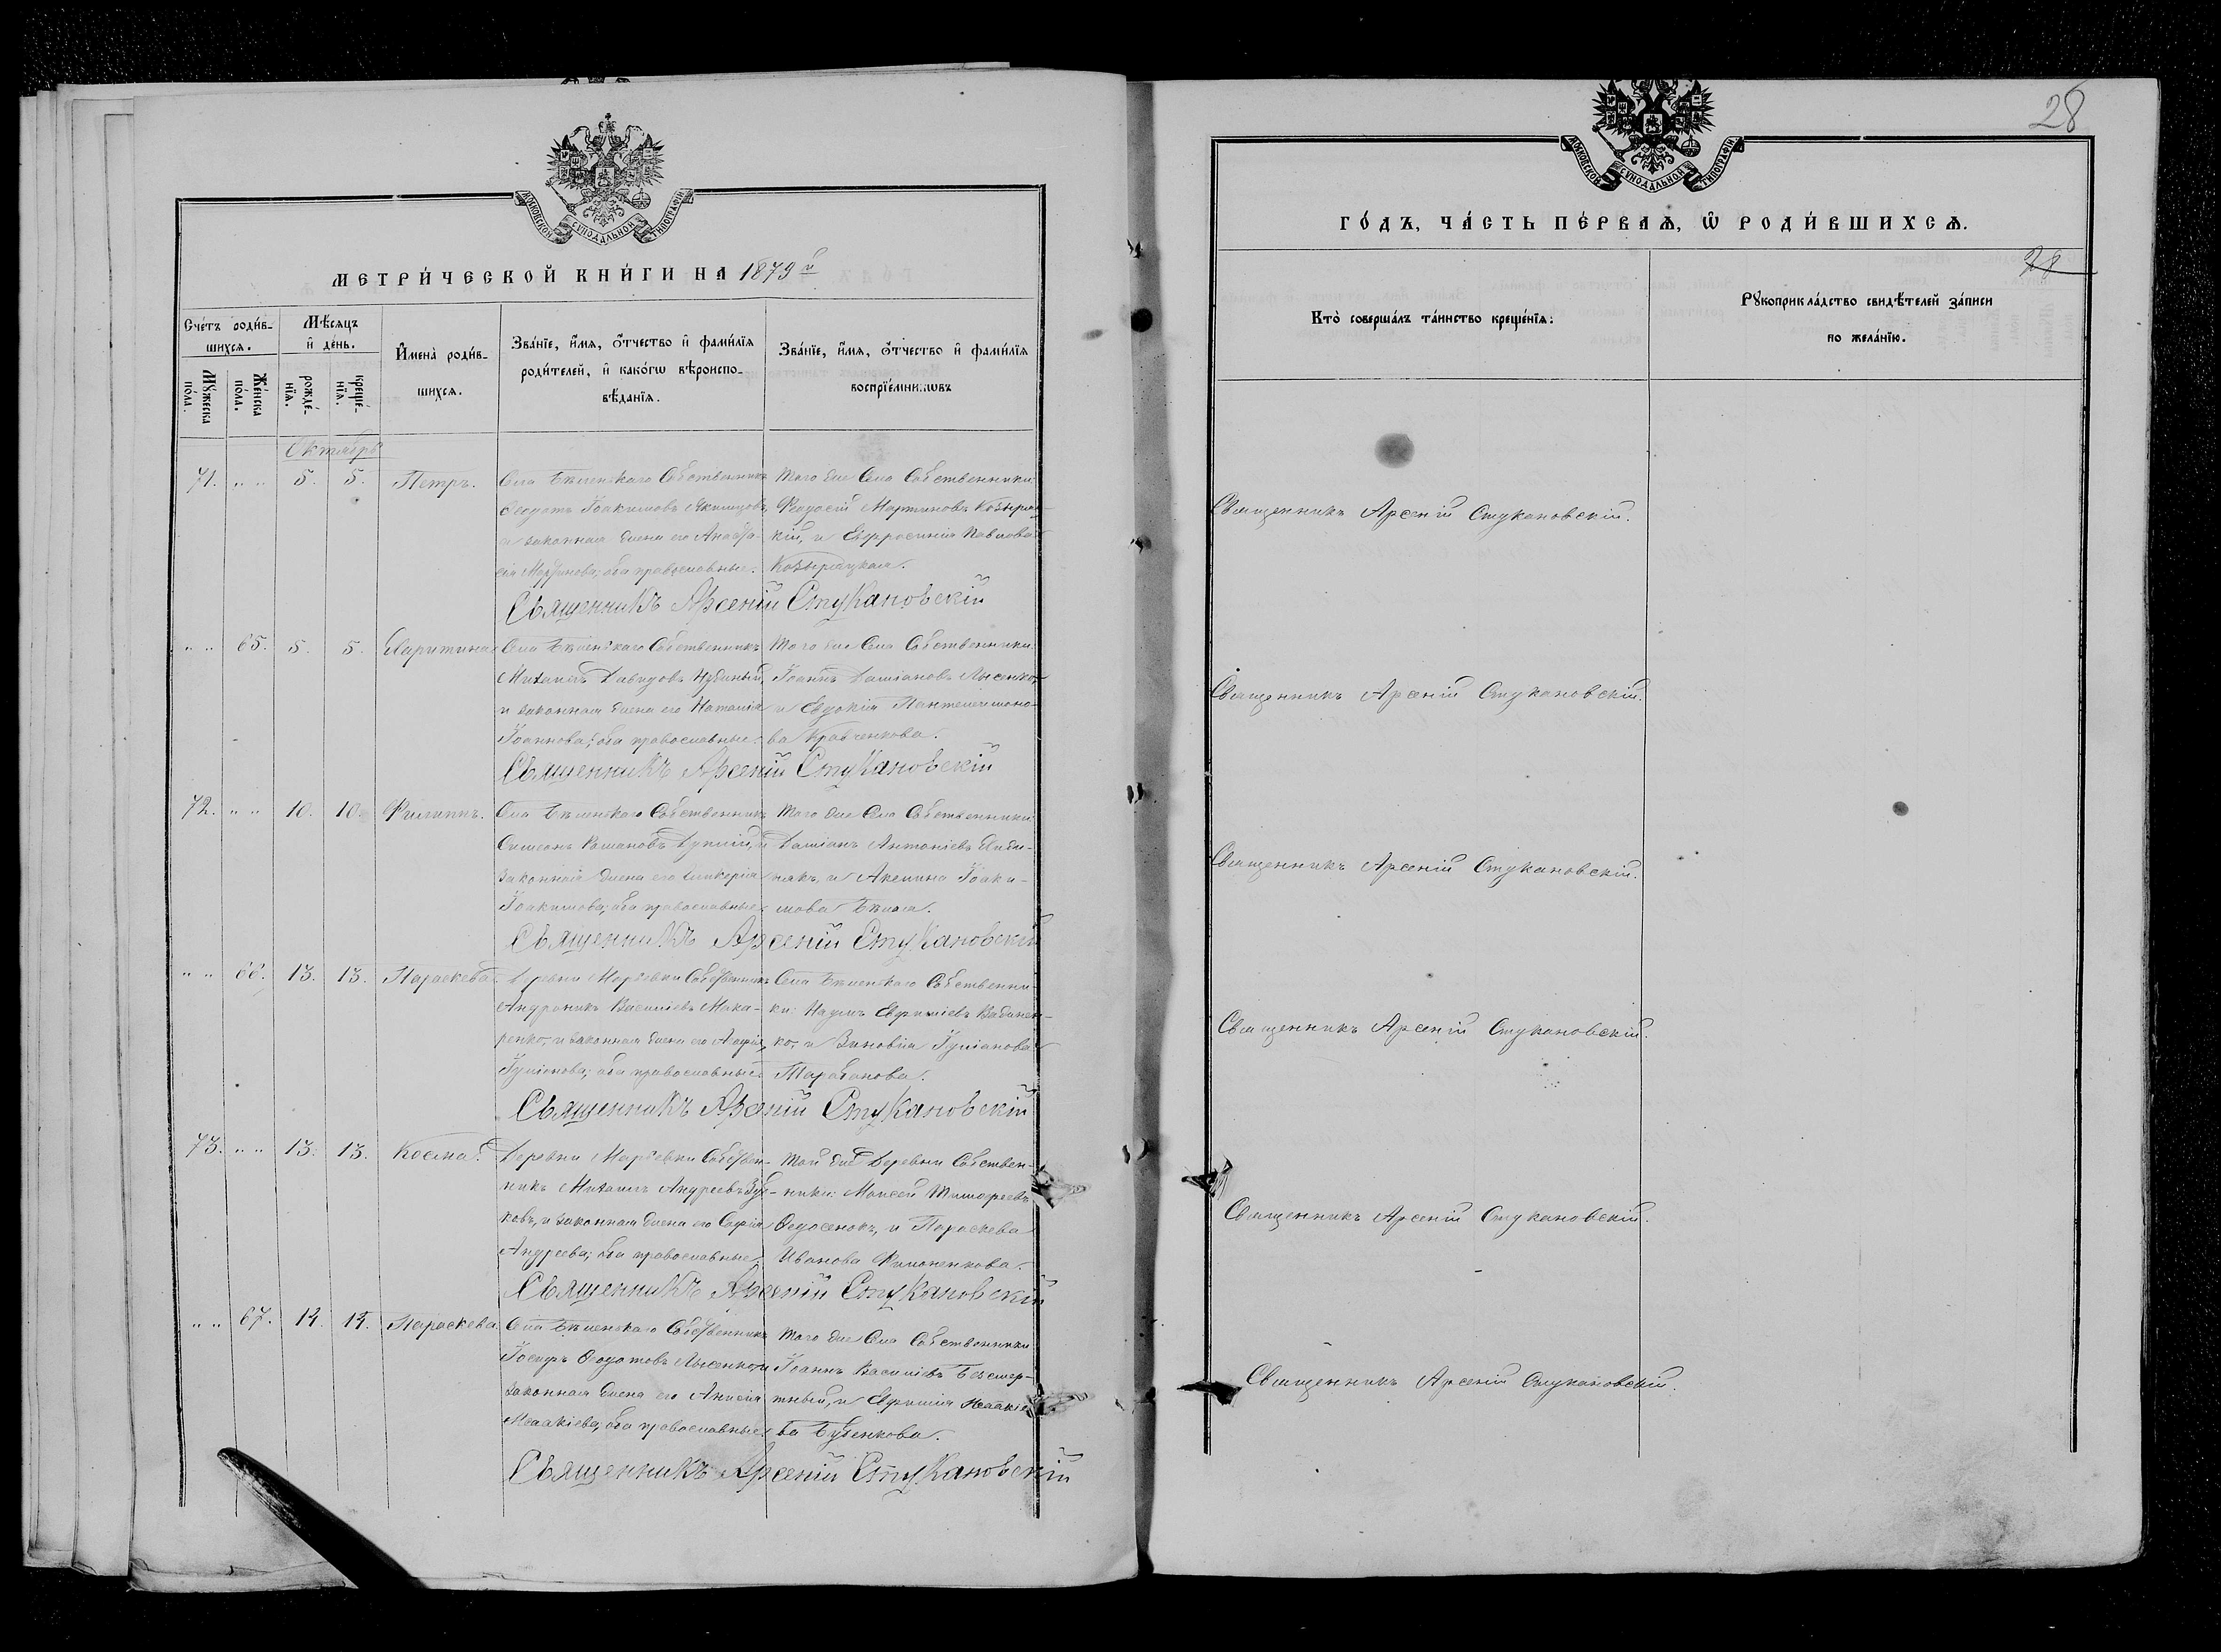 МОСКОВСКОЙ СѴНОДАЛЬНОЙ ТИПОГРАФІИ
МЕТРИ́ЧЕСКОЙ КНИ́ГИ НА 1879 й
Сче́тъ роди́в-
шихсѧ.
Мѣ́сѧцъ
и҆ де́нь.
И҆мена̀ роди́в-
шихсѧ.
Зва́нїе, и҆́мѧ, ѻ҆́тчество и҆ фами́лїѧ
роди́телей, и҆ како́гѡ вѣроиспо-
вѣ́данїѧ.
Зва́нїе, и҆́мѧ, ѻ҆́тчество и҆ фами́лїѧ
воспрїе́мникѡвъ
Мꙋ́жеска
по́ла.
Же́нска
по́ла.
рожде́-
нїѧ.
креще́-
нїѧ.
Октябрь
71. „ „ 5. 5. Петръ.
Села Бѣленскаго Собственникъ
Ѳеодотъ Іоакимовъ Якимцовъ,
и законная жена его Анаста-
сія Мартинова; оба православные.
Того же Села Собственники:
Ѳеодосій Мартиновъ Козырац-
кій, и Евфросинія Павлова
Козырацкая.
Священникъ Арсеній Стукановскій
„ „ 65. 5. 5. Харитина.
Села Бѣленскаго Собственникъ
Михаилъ Давидовъ Нудный,
и законная жена его Наталія
Іоаннова; оба православные.
Того же Села Собственники:
Іоаннъ Даміановъ Лысенко,
и Евдокія Пантелеимоно-
ва Кравченкова.
Священникъ Арсеній Стукановскій
72. „ „ 10. 10. Филиппъ.
Села Бѣленскаго Собственникъ
Симеонъ Романовъ Дуплій, и
законная жена его Гликерія
Іоакимова; оба православные.
Того же Села Собственники:
Даміанъ Антоніевъ
и Акелина Іоаки-
мова Бѣлая.
Священникъ Арсеній Стукановскій
„ „ 66. 13. 13. Параскева.
Деревни Марьевки Собственникъ
Андроникъ Василіевъ Мака-
ренко, и законная жена его Агафія
Іуліанова; оба православные.
Села Бѣленскаго Собственни-
ки: Наумъ Евфиміевъ Бабинен-
ко, и Зиновія Іуліанова
Тарабанова.
Священникъ Арсеній Стукановскій
73. „ „ 13. 13. Косма.
Деревни Марьевки Собствен-
никъ Михаилъ Андреевъ Зуб-
ковъ, и законная жена его Софія
Андреева; оба православные.
Той же Деревни Собствен-
ники: Моисей Тимофеевъ
Ѳедосенокъ, и Параскева
Иванова Филоненкова.
Священникъ Арсеній Стукановскій
„ „ 67. 14. 14. Параскева.
Села Бѣленскаго Собственникъ
Іосифъ Ѳеодотовъ Лысенко, и
законная жена его Анисія
Исаакіева; оба православные.
Того же Села Собственники:
Іоаннъ Василіевъ Безсмер-
тный, и Евфимія Исаакіе-
ва Бубенкова.
Священникъ Арсеній Стукановскій
28
МОСКОВСКОЙ СѴНОДАЛЬНОЙ ТИПОГРАФІИ
ГО́ДЪ, ЧА́СТЬ ПЕ́РВАѦ, Ѡ҆ РОДИ́ВШИХСѦ.
28
Кто̀ соверша́лъ та́инство креще́нїѧ:
Рꙋкоприкла́дство свидѣ́телей за́писи
по жела́нїю.
Священникъ Арсеній Стукановскій.
Священникъ Арсеній Стукановскій.
Священникъ Арсеній Стукановскій.
Священникъ Арсеній Стукановскій.
Священникъ Арсеній Стукановскій.
Священникъ Арсеній Стукановскій.